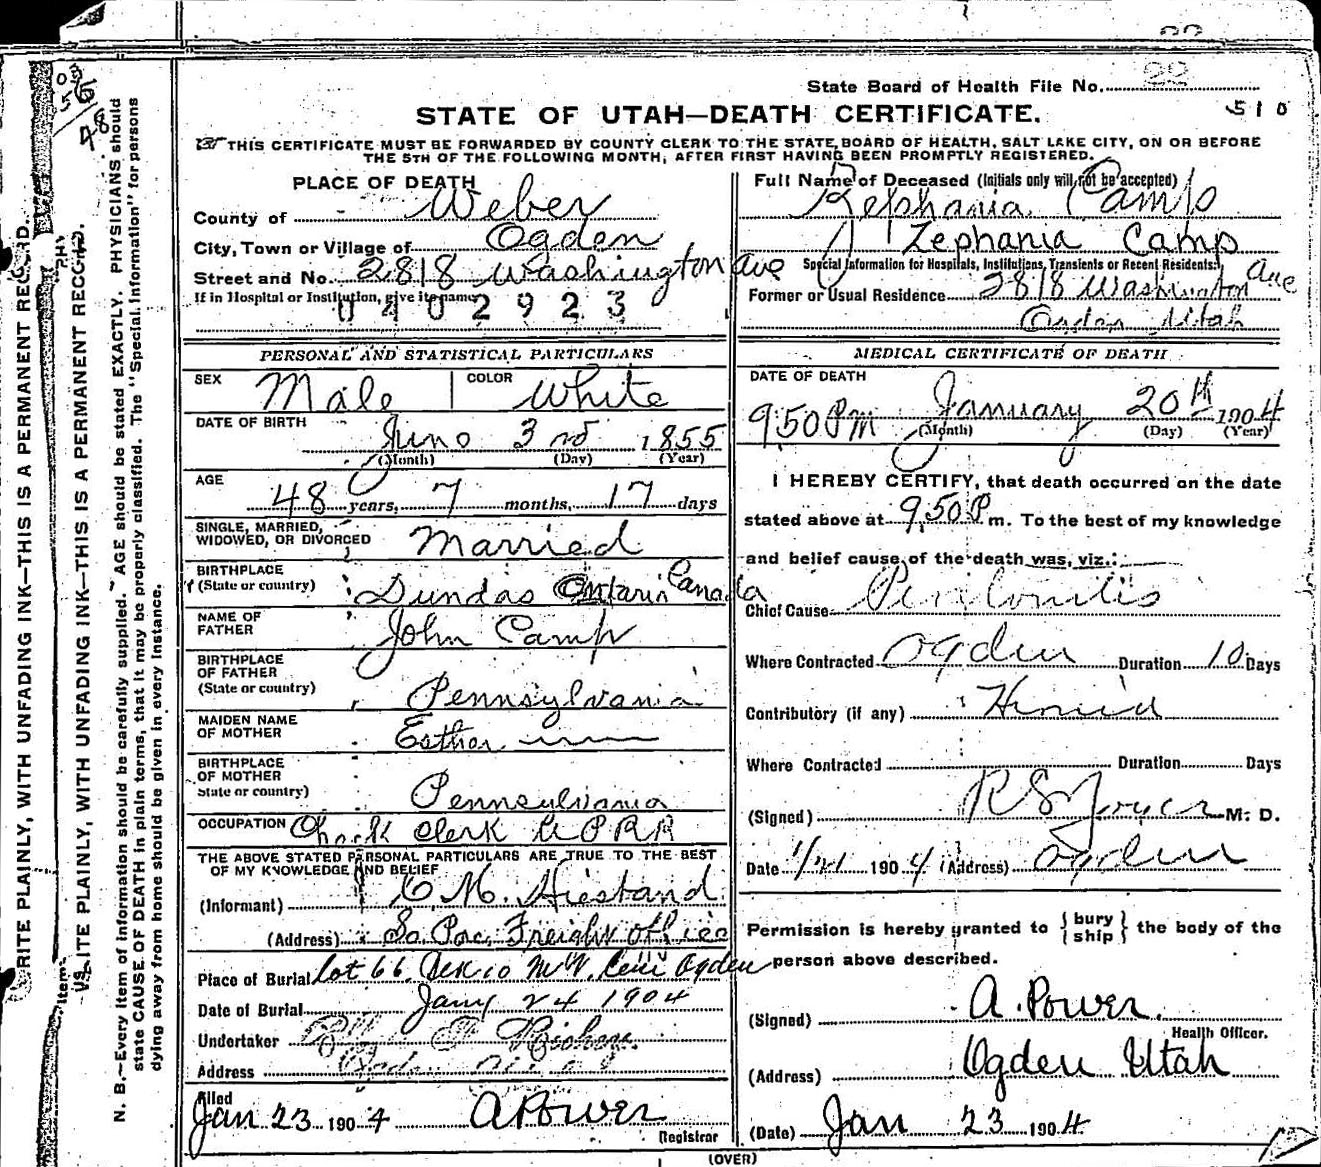 State Board of Health File No. 22
510
STATE OF UTAH—DEATH CERTIFICATE.
THIS CERTIFICATE MUST BE FORWARDED BY COUNTY CLERK TO THE STATE BOARD OF HEALTH, SALT LAKE CITY, ON OR BEFORE
THE 5TH OF THE FOLLOWING MONTH, AFTER FIRST HAVING BEEN PROMPTLY REGISTERED.
PLACE OF DEATH
County of Weber
City, Town or Village of Ogden
Street and No. 2818 Washington Ave
If in Hospital or Institution, give its name
0402923
Full Name of Deceased (Initials only will not be accepted)
Zephania Camp
Zephania Camp
Special Information for Hospitals, Institutions, Transients or Recent Residents:
Former or Usual Residence 2818 Washington Ave
Ogden Utah
PERSONAL AND STATISTICAL PARTICULARS
SEX Male COLOR White
DATE OF BIRTH
June 3rd 1855
(Month) (Day) (Year)
AGE
48 years, 7 months, 17 days
SINGLE, MARRIED,
WIDOWED, OR DIVORCED Married
BIRTHPLACE
(State or country) Dundas Ontario Canada
NAME OF
FATHER John Camp
BIRTHPLACE
OF FATHER
(State or country) Pennsylvania
MAIDEN NAME
OF MOTHER Esther
BIRTHPLACE
OF MOTHER
State or country) Pennsylvania
OCCUPATION Check Clerk U P R R
THE ABOVE STATED PERSONAL PARTICULARS ARE TRUE TO THE BEST
OF MY KNOWLEDGE AND BELIEF
(Informant) C M. Hiestand
(Address) So. Pac. Freight office
Place of Burial Lot 66 Ogden
Date of Burial Jany 24 1904
Undertaker Richey
Address
Filed
Jan 23 1904 A Power
Registrar
MEDICAL CERTIFICATE OF DEATH
DATE OF DEATH
9:50 PM January 20th 1904
(Month) (Day) (Year)
I HEREBY CERTIFY, that death occurred on the date
stated above at 9.50 P m. To the best of my knowledge
and belief cause of the death was, viz.:
Chief Cause Peritonitis
Where Contracted Ogden Duration 10 Days
Contributory (if any)
Where Contracted Duration Days
(Signed) R S Joyce M. D.
Date 1/21 1904 (Address) Ogden
Permission is hereby granted to {bury
ship} the body of the
person above described.
(Signed) A. Power.
Health Officer.
(Address) Ogden Utah
(Date) Jan 23 1904
(OVER)
RITE PLAINLY, WITH UNFADING INK—THIS IS A PERMANENT RECORD.
ITE PLAINLY, WITH UNFADING INK—THIS IS A PERMANENT RECORD.
N. B.—Every item of information should be carefully supplied. AGE should be stated EXACTLY. PHYSICIANS should
state CAUSE OF DEATH in plain terms, that it may be properly classified. The "Special Information" for persons
dying away from home should be given in every instance.